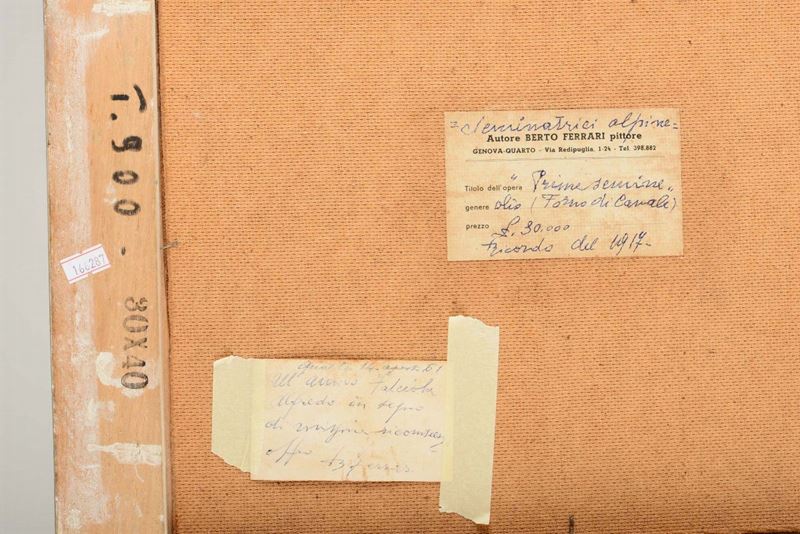 T. 900 - 30X40
166287
= Seminatrici alpine =
Autore BERTO FERRARI pittore
GENOVA-QUARTO - Via Redipuglia, 1-24 - Tel. 398.882
Titolo dell'opera "Prime semine"
genere olio (Forno di Canale)
prezzo £. 30.000
ricordo del 1917-
Quarto 14 agosto 61
All'amico
Alfredo in segno
di
offro